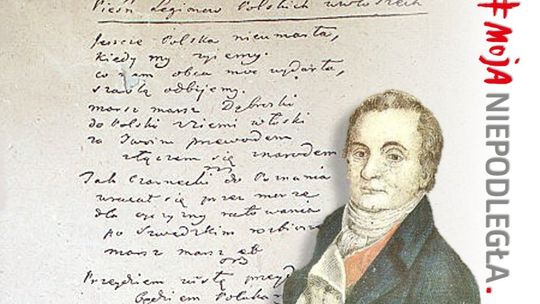 Pieśń Legionow Polskich we włoszech
Jeszcze Polska nieumarła,
kiedy my żyiemy.
co nam obca moc wydarła,
szablą odbijemy.
marsz marsz Dąbroski
do Polski z ziemi włoski
za Twoim przewodem
złączem się z narodem
Jak Czarnecki do Poznania
wracał się przez morze
dla oyczyzny ratowania
po Szwedzkim rozbiorze
marsz marsz
Przejdziem Wisłę
będziem
#MOJA NIEPODLEGŁA.